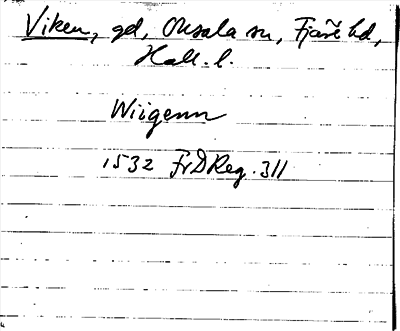 Viken, gd, Onsala sn, Fjäre hd,
Hall. l.
Wiigenn
1532 FrDReg. 311